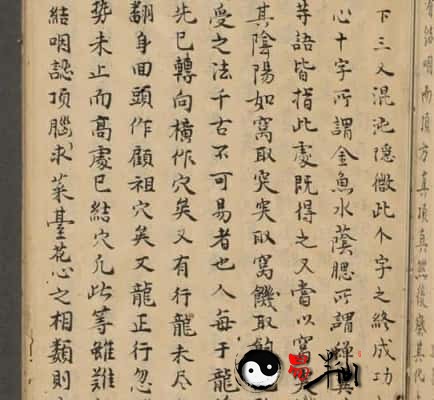 結咽而頂方真頂真然後察其
下三叉混沌隱微此个字之終成功
心十字所謂金魚水蔭腮所謂蟬翼
等語皆指此處既得之又當以窩
其陰陽如窩取突突取窩饑取
受之法千古不可易者也人每于龍
先已轉向橫作穴矣又有行龍未尽
翻身回頭作顧祖穴矣又龍正行忽
勢未止而高處已結穴凡此等雖難
結咽認頂腦求菜臺花心之相類則